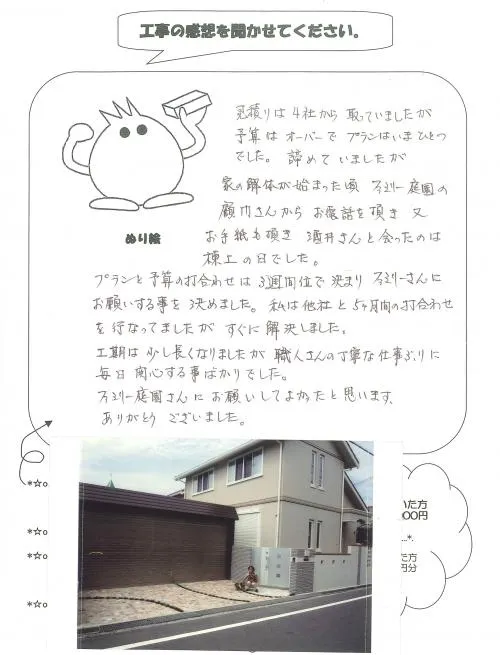 工事の感想を聞かせてください。
見積りは4社から取っていましたが
予算はオーバーでプランはいまひとつ
でした。諦めていましたが
家の解体が始まった頃 ファミリー庭園の
さんからお電話を頂き 又
お手紙も頂き 酒井さんと会ったのは
棟上の日でした。
ぬり絵
プランと予算の打合わせは3週間位で決まり ファミリーさんに
お願いする事を決めました。私は他社と5ヶ月間の打合わせ
を行なってましたが すぐに解決しました。
工期は少し長くなりましたが 職人さんの丁寧な仕事ぶりに
毎日関心する事ばかりでした。
ファミリー庭園さんにお願いしてよかったと思います。
ありがとうございました。
*☆o
いた方
00円
*☆o
...*.
*☆o
た方
円分
*☆o